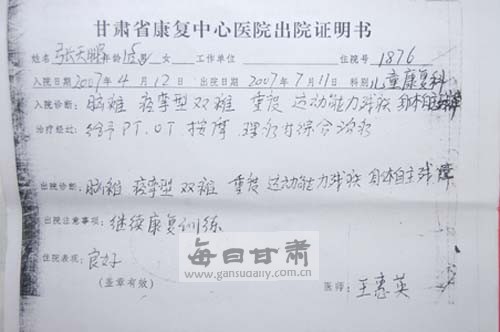 甘肃省康复中心医院出院证明书
姓名 张天赐 年龄 15 男 女 工作单位 住院号 1876
入院日期 2007年4月12日 出院日期 2007年7月11日 科别 儿童康复科
入院诊断: 脑瘫 痉挛型双瘫 重度 运动能力残疾 身体自主残障
治疗经过: 给予PT.OT 按摩.理疗等综合治疗
出院诊断: 脑瘫 痉挛型双瘫 重度 运动能力残疾 身体自主残障
出院注意事项: 继续康复训练
每日甘肃
www.gansudaily.com.cn
住院表现: 良好
(盖章有效) 医师: 王惠英